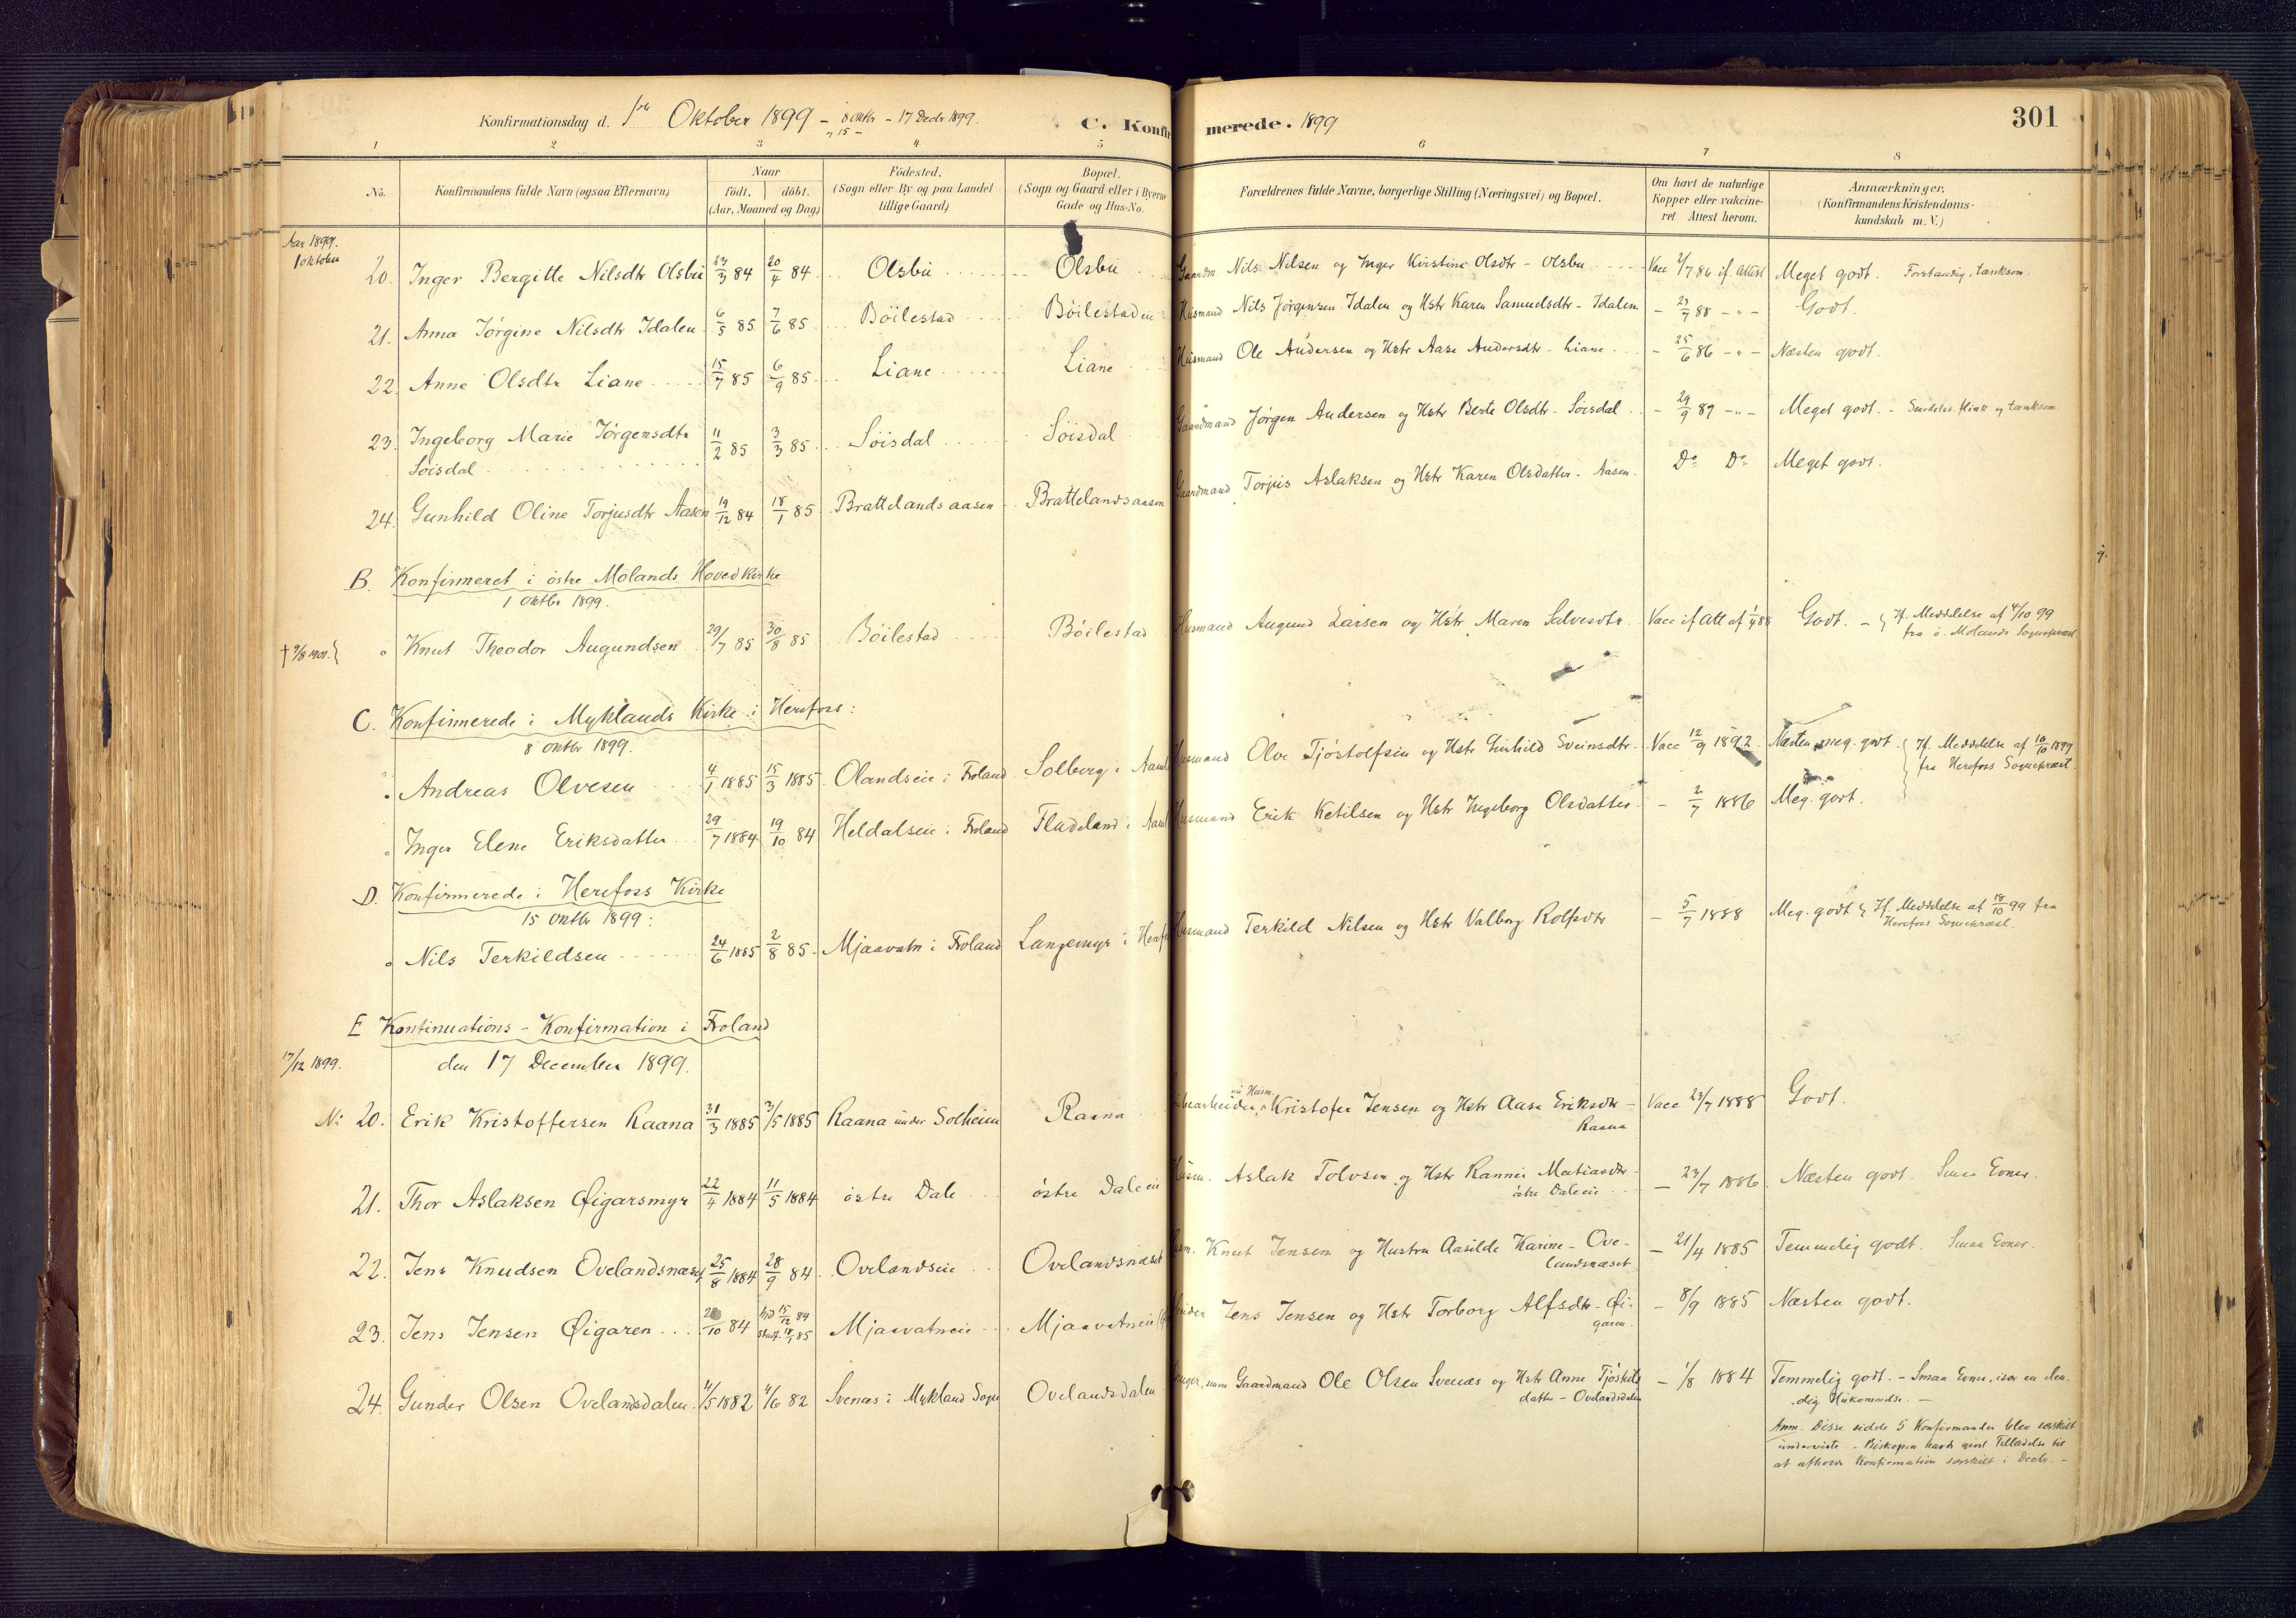 Konfirmationsdag d. 1ste Oktober 1899 – 8 Oktbr – 17 Decbr 1899.
„ 15 –
C. Konfirmerede. 1899
301
1 2 3 4 5 6 7 8
No. Konfirmandens fulde Navn (ogsaa Efternavn) Naar födt. döbt. (Aar, Maaned og Dag) Födested. (Sogn eller By og paa Landet tillige Gaard) Bopæl. (Sogn og Gaard eller i Byerne Gade og Hus-No. Forældrenes fulde Navne, borgerlige Stilling (Næringsvei) og Bopæl. Om havt de naturlige Kopper eller vakcineret Attest herom. Anmærkninger. (Konfirmandens Kristendomskundskab m. V.)
Aar 1899.
1 Oktober
20. Inger Bergitte Nilsdtr Olsbu 23/3 84 20/4 84 Olsbu Olsbu Gaardm Nils Nilsen og Inger Kirstine Olsdtr – Olsbu Vacc 2/7 86 if. Attest Meget godt. Forstandig, tænksom.
21. Anna Jörgine Nilsdtr Idalen 6/5 85 7/6 85 Böilestad Böilestad eie Husmand Nils Jörgensen Idalen og Hstr Karen Samuelsdtr – Idalen – 23/7 88 – „ – Godt.
22. Anne Olsdtr Liane 15/7 85 6/9 85 Liane Liane Husmand Ole Andersen og Hstr Aase Andersdtr – Liane – 25/6 86 – „ – Næsten godt.
23. Ingeborg Marie Jörgensdtr
Söisdal 11/2 85 3/3 85 Söisdal Söisdal Gaardmand Jörgen Andersen og Hstr Berte Olsdtr – Söisdal – 29/9 89 – „ – Meget godt. – Særdeles flink og tænksom
24. Gunhild Oline Torjusdtr Aasen 19/12 84 18/1 85 Brattelandsaasen Brattelandsaasen Gaardmand Torjus Aslaksen og Hstr Karen Olsdatter – Aasen. Do Do Meget godt.
B. Konfirmeret i östre Molands Hovedkirke
1 Oktbr 1899.
† 9/8 1901. " Knut Theodor Augundsen 29/7 85 30/8 85 Böilestad Böilestad Husmand Augund Larsen og Hstr Maren Salvesdtr Vacc if Att af 1/7 88 Godt. – Jf. Meddelelse af 4/10 99
fra ö. Molands Sognepræst
C. Konfirmerede i Myklands Kirke i Herefoss:
8 Oktbr 1899.
" Andreas Olvesen 4/1 1885 15/3 1885 Olandseie i Froland Solberg i Aamli Husmand Olve Tjöstolfsen og Hstr Gunhild Sveinsdtr Vacc 12/9 1892. Næsten meg. godt. Jf. Meddelelse af 10/10 1899
fra Herefoss Sognepræst.
" Inger Elene Eriksdatter 29/7 1884 19/10 84 Heldalseie i Froland Fladeland i Aamli Husmand Erik Ketilsen og Hstr Ingeborg Olsdatter – 2/7 1886 Meg. godt.
D. Konfirmerede i Herefoss Kirke
15 Oktbr 1899:
" Nils Terkildsen 24/6 1885 2/8 85 Mjaavatn i Froland Langemyr i Herefoss Husmand Terkild Nilsen og Hstr Valborg Rolfsdtr – 5/7 1888 Meg. godt Jf. Meddelelse af 18/10 99 fra
Herefoss Sognepræst.
E Kontinuations – Konfirmation i Froland
17/12 1899. den 17 December 1899.
No 20. Erik Kristoffersen Raana 31/3 1885 3/5 1885 Raana under Solheim Raana nu Husm. Kristofer Jensen og Hstr Aase Eriksdtr –
Raana Vacc 23/7 1888 Godt.
21. Thor Aslaksen Øigarsmyr 22/4 1884 11/5 1884 östre Dale östre Daleeie Husm. Aslak Tolvsen og Hstr Rannei Matiasdtr –
östre Daleeie – 23/7 1886. Næsten godt. Smaa Evner.
22. Jens Knudsen Ovelandsnæset 25/8 1884 28/9 84 Ovelandseie Ovelandsnæset Husm. Knut Jensen og Hustru Aasilde Karine – Ove-
landsnæset – 21/4 1885 Temmelig godt. Smaa Evner.
23. Jens Jensen Øigaren 2/10 84 hjd 15/12 84
stadf. 18/1 85 Mjaavatneie Mjaavatneie Jens Jensen og Hstr Torborg Alfsdtr – Øi-
garen. – 8/9 1885 Næsten godt.
24. Gunder Olsen Ovelandsdalen 4/5 1882 4/6 82 Svenæs i Mykland Sogn Ovelandsdalen Gaardmand Ole Olsen Svenæs og Hstr Anne Tjöstels
datter – Ovelandsdalen – 1/8 1884 Temmelig godt. – Smaa Evner, især en elen-
dig Hukommelse. –
Anm. Disse sidste 5 Konfirmander blev særskilt
underviste. – Biskopen havde givet Tilladelse til
at afholde Konfirmation særskilt i Decbr. –